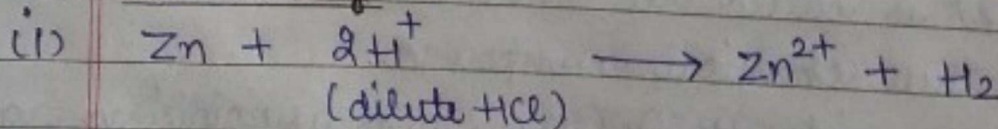 (i) Zn + 2H⁺ ⟶ Zn²⁺ + H₂
(dilute HCl)